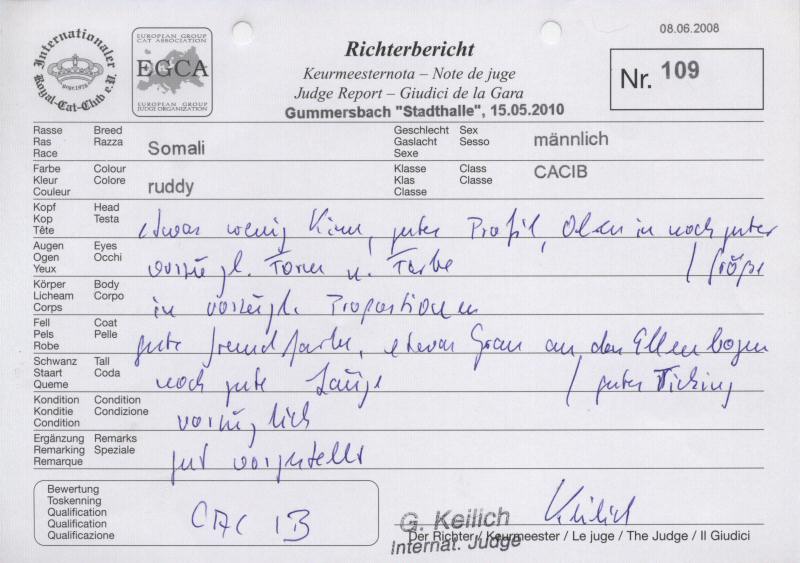 08.06.2008
Internationaler Royal-Cat-Club e.V.
EUROPEAN GROUP
CAT ASSOCIATION
EGCA
EUROPEAN GROUP
JUDGE ORGANIZATION
Richterbericht
Keurmeesternota – Note de juge
Judge Report – Giudici de la Gara
Gummersbach "Stadthalle", 15.05.2010
Nr. 109
Rasse Breed
Ras Razza
Race
Somali
Geschlecht Sex
Gaslacht Sesso
Sexe
männlich
Farbe Colour
Kleur Colore
Couleur
ruddy
Klasse Class
Klas Classe
Classe
CACIB
Kopf Head
Kop Testa
Tête
etwas wenig Kinn, gutes Profil, Ohren in noch guter
/ Größe
Augen Eyes
Ogen Occhi
Yeux
vorzügl. Form u. Farbe
Körper Body
Licheam Corpo
Corps
in vorzügl. Proportionen
Fell Coat
Pels Pelle
Robe
gute Grundfarbe, etwas Grau an den Ellenbogen
/ gutes Ticking
Schwanz Tall
Staart Coda
Queme
noch gute Länge
Kondition Condition
Konditie Condizione
Condition
vorzüglich
Ergänzung Remarks
Remarking Speziale
Remarque
gut vorgestellt
Bewertung
Toskenning
Qualification
Qualification
Qualificazione
CAC IB
G. Keilich
Internat. Judge
Keilich
Der Richter / Keurmeester / Le juge / The Judge / Il Giudici